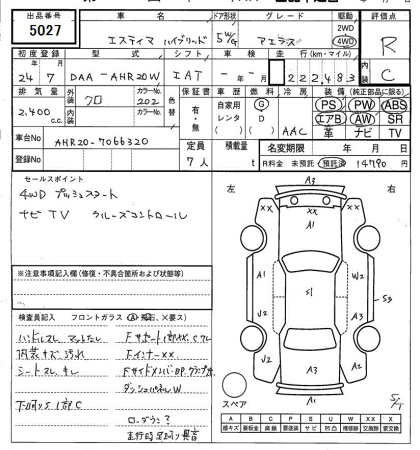 出品番号
5027
車名
エスティマ ハイブリッド
ドア形状
5W/G
グレード
アエラス
駆動
2WD
4WD
評価点
R
内装
C
初度登録
24年7月
型式
DAA-AHR20W
シフト
IAT
車検
-年-月
走行(km・マイル)
222,483
排気量
2,400 c.c.
外装色
クロ
カラーNo.
202
内装色
カラーNo.
色替
保証書
有・無
車歴
自家用
レンタ
燃料
G
D
冷房
AAC
装備(純正部品に限る)
PS PW ABS
エアB AW SR
革 ナビ TV
車台No
AHR20-7066320
登録No
定員
7人
積載量
t
名変期限
年 月 日
R料金 未預託 預託済 14790円
セールスポイント
4WD プッシュスタート
ナビ TV クルーズコントロール
※注意事項記入欄(修復・不具合箇所および状態等)
検査員記入 フロントガラス(A・飛石、×要ス)
ハンドルスレ マットなし
内装キズ汚れ
シートスレ キレ
下回りS1部C
FインナーXX
ダッシュパネルW
走行時足回り異音
左 右
A3
XX XX XX
A1
A1
W2
S1
S3
A1
J2
J2
A3
A3
A1
スペア
5/T
A B C P S U W X XX
線キズ 要板金 腐蝕 要塗装 サビ 凹凸 補修跡 要交換